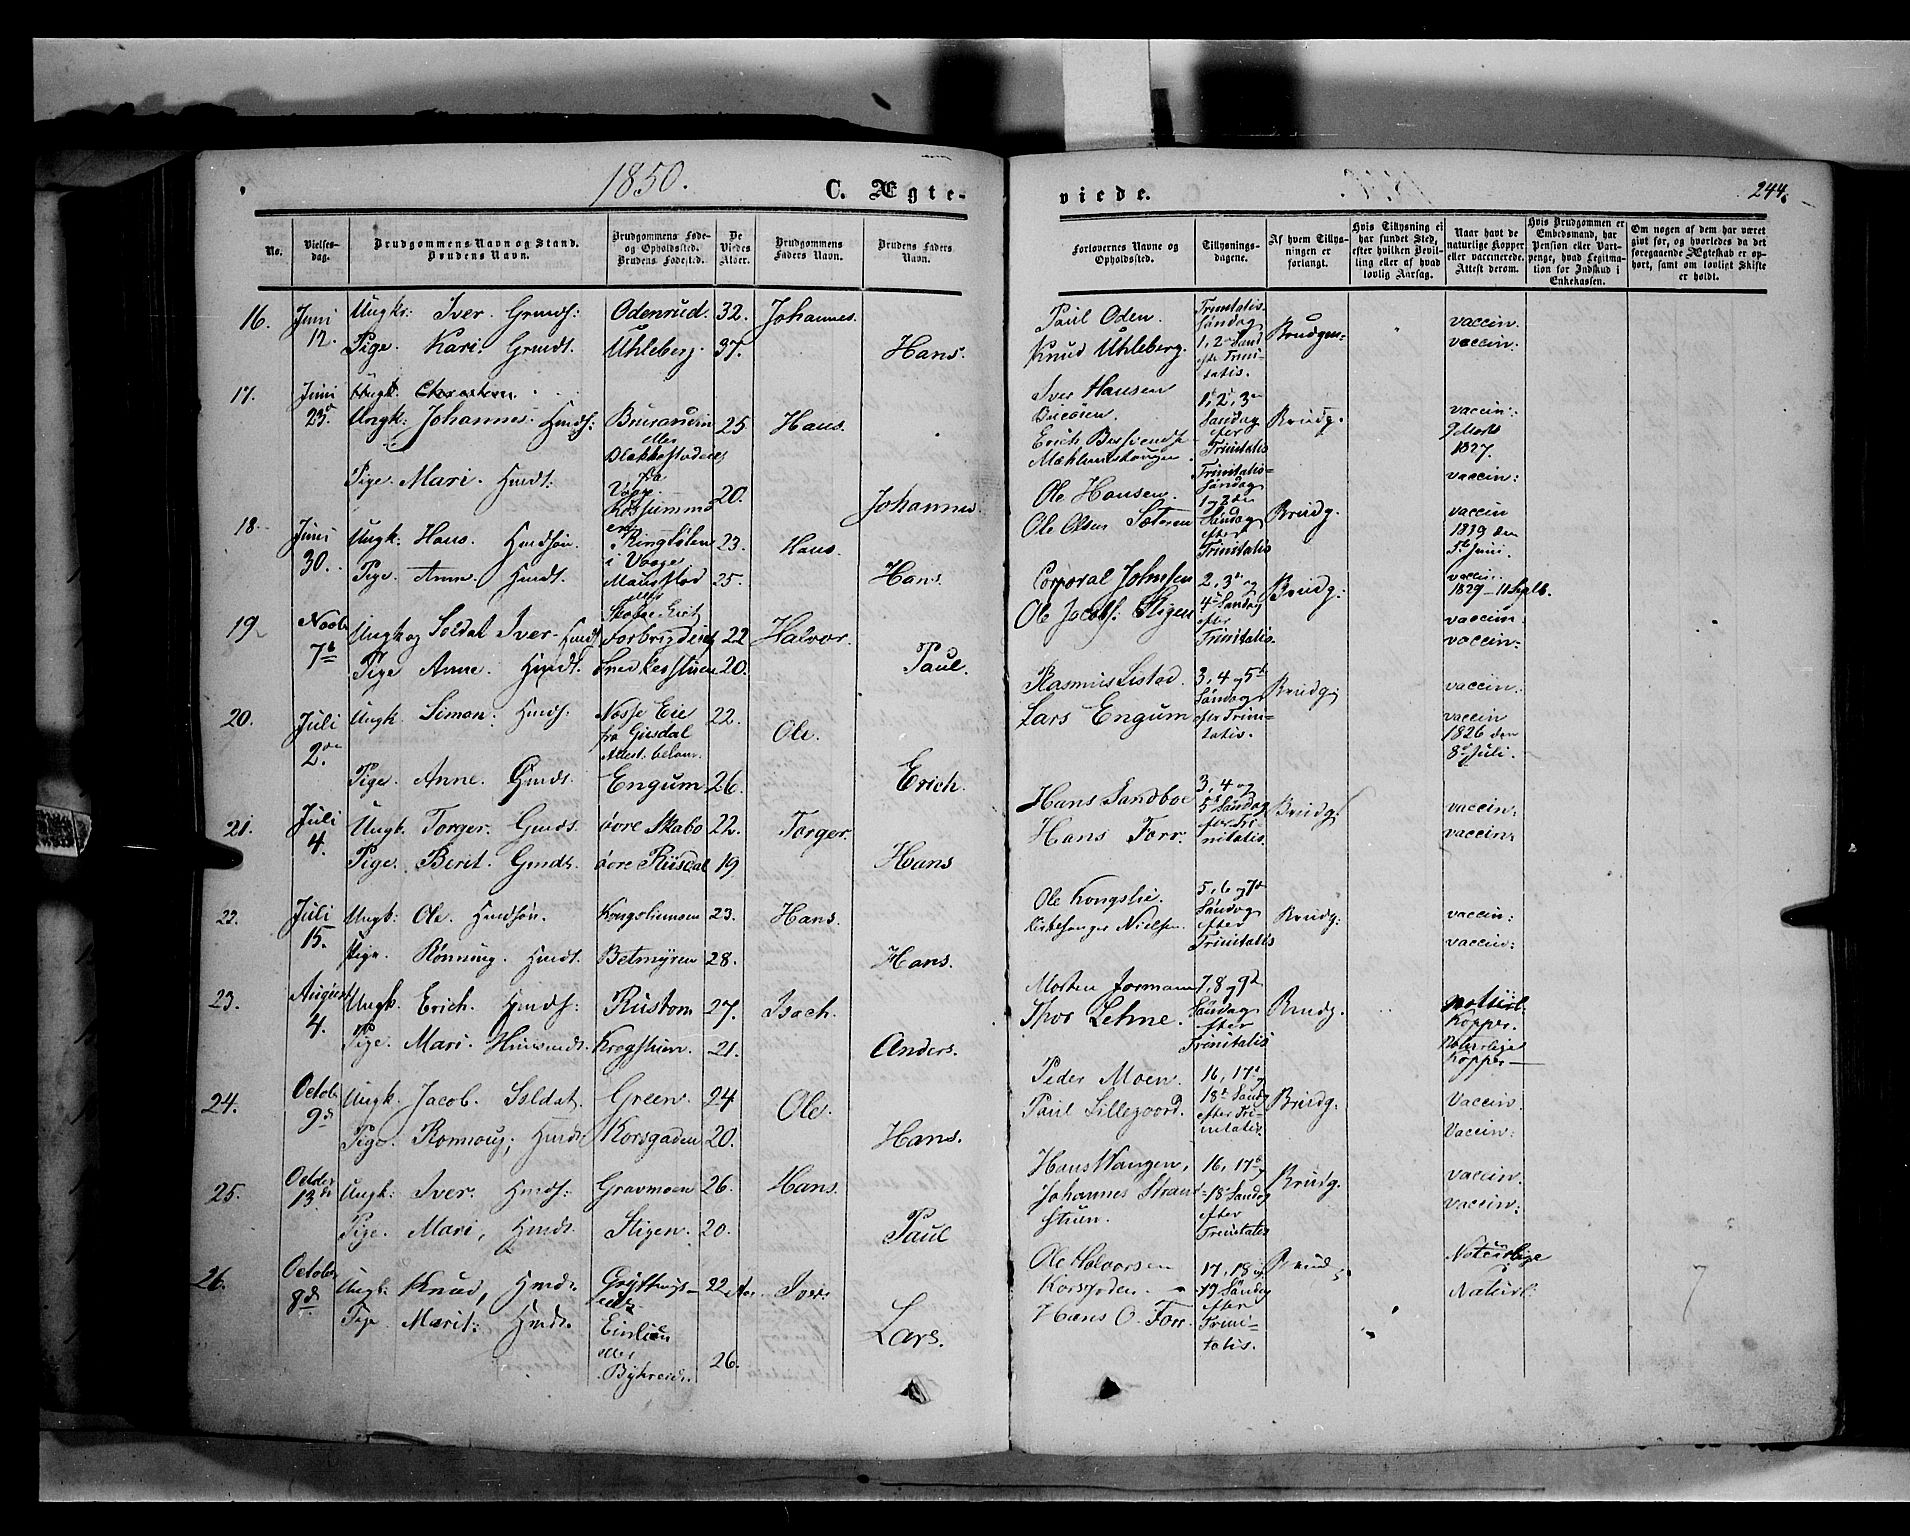 1850.
C. Ægte-
viede.
244.
No.
Vielses-
dag.
Brudgommens Navn og Stand.
Brudens Navn.
Brudgommens Føde-
og Opholdssted.
Brudens Fødested.
De
Viedes
Alder.
Brudgommens
Faders Navn.
Brudens Faders
Navn.
Forlovernes Navne og
Opholdssted.
Tillysnings-
dagene.
Af hvem Tillys-
ningen er
forlangt.
Hvis Tillysning ei
har fundet Sted,
efter hvilken Bevil-
ling eller af hvad
lovlig Aarsag.
Naar havt de
naturlige Kopper
eller vaccinerede.
Attest derom.
Hvis Brudgommen er
Embedsmand, har
Pension eller Vart-
penge, hvad Legitima-
tion for Indskud i
Enkekassen.
Om nogen af dem har været
gift før, og hvorledes da det
foregaaende Ægteskab er op-
hørt, samt om lovligt Skifte
er holdt.
16. Juni Ungkr: Iver Gmdf: Odenrud. 32. Johannes.
12. Pige. Kari. Gmdt. Uhleberg. 37. Hans.
Paul Oden. Trinitatis Brudgm: vaccin.
Knud Uhleberg. Søndag vaccin:
1, 2den Sønd
efter Trini-
tatis.
17. Juni Ungk Christen
23d Ungk: Johannes. Hmdf: 25 Hans.
eller
fra
Pige. Mari. Hmdt: Vaage. 20. Johannes
Iver Hansen 1, 2, 3die Brudg. vaccin:
Søndag 9 Marts
Erich efter 1827.
Trinitatis vaccin:
18. Juni Ungk: Hans. Hmdsøn. 23. Hans.
30. i Vaage
Pige. Anne Hmdt. 25. Hans
eller
Ole Hansen. Trinitatis- Brudg. vaccin
Ole Olsen Sæteren Søndag 1839 den
1, 2den 5te Juni.
Søndag vaccin:
efter 1829 – 11 Septb.
Trinitatis
19 Novb. Ungk og Soldat Iver. Hmdf 22 Halvor.
7de Pige Anne. Hmdt. 20. Paul.
Corporal Johnsen 2, 3die og Brudg: vaccin.
Ole Jacobs. Stigen 4de Søndag vaccin:
efter
Trinitatis.
20. Juli Ungk. Simon. Hmdf. Eie 22. Ole.
2den fra
Attest.
Pige. Anne. Gmdt. Engum 26. Erich.
Rasmus Listad. 3, 4 og 5te Brudg. vaccin:
Lars Engum Søndag vaccin
efter Trini- 1826 den
tatis. 8de Juli.
21. Juli Ungk. Torger. Gmds. øvre Skabo 22. Torger.
4. Pige. Berit. Gmdt. øvre Riisdal 19 Hans
Hans Sandboe 3, 4 og Brudg. vaccin.
Hans Forr. 5te Søndag vaccin:
efter Tri-
nitatis.
22. Juli Ungk: Ole. Hmdsøn. Kongsliemoen 23. Hans.
15. Pige. Rønnaug. Hmdt. Betmyren 28. Hans.
Ole Kongslie. 5, 6 og 7de Brudg: vaccin:
Kirkesanger Nielsen. Søndag vaccin:
efter
Trinitatis
23. August Ungk. Erich. Hmdf: Rustom 27. Isach.
4. Pige. Mari. 21. Anders.
Morten Formann 7, 8 og 9de Brudg. naturl.
Thor Lehne. Søndag Kopper.
efter Naturlige
Trinitatis Kopper –
24. Octob. Ungk. Jacob. Soldat. Green. 24 Ole.
9de Pige. Hmdt Korsgaden 20. Hans.
Peder Moen. 16, 17de og Brudg. Vaccin.
Paul Lillegaard. 18de Sønd. Vaccin:
efter Tri-
nitatis.
25. October Ungk: Iver. Hmdf: Gravmoen 26. Hans.
13de Pige. Mari, Hmdt. Stigen. 20. Paul
Hans Vangen, 16, 17de Brudg. vaccin.
Johannes Strand- 18 Søndag vaccin:
stuen. efter
Trinitatis
26. Octobr Ungk: Knud, Hmds. 22 Aar.
8de Pige Marit: Hmdt. 26. Lars.
eller
Ole Halvorsen 17, 18 og Brudg. Naturlige
Korsgaden 19 Søndag Naturl:
Hans O. Forr. efter
Trini-
tatis.